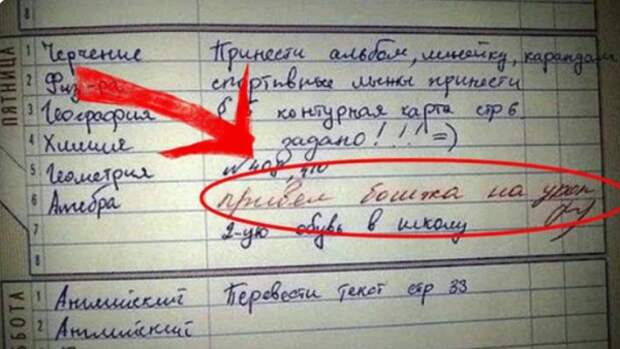 ПЯТНИЦА
1 Черчение Принести альбом, линейку, каранда
2 Физ-ра спортивные лыжы принести
3 География контурная карта стр 6
4 Химия задано!!! =)
5 Геометрия №408, 410
6 Алгебра привел бошка на урок
7 2-ую обувь в школу
8
ББОТА
1 Английский Перевести текст стр 33
2 Английский